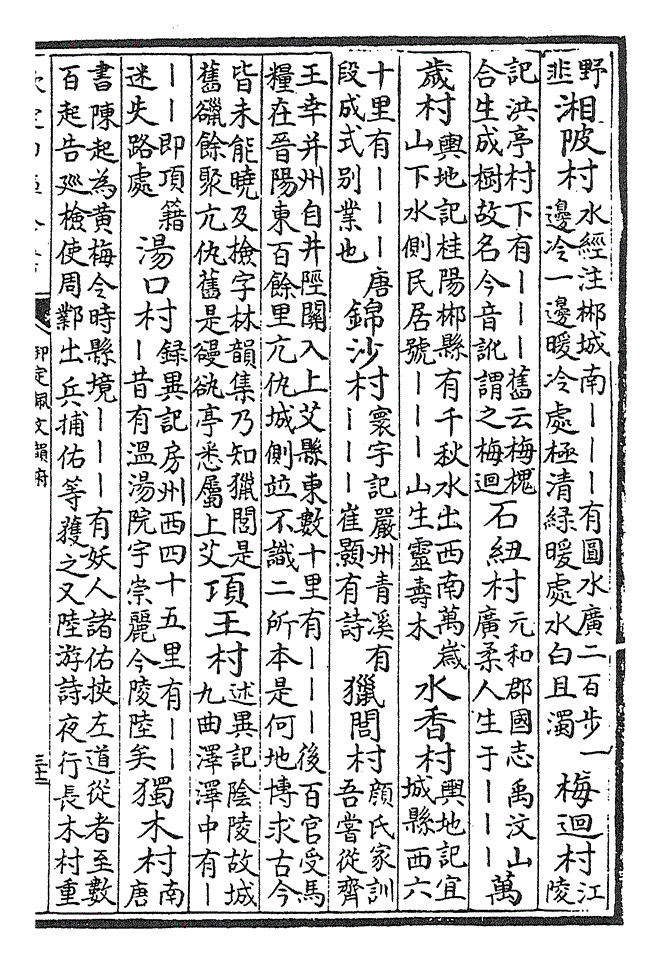 野
韭
湘陂村
水經注郴城南———有圓水廣二百步一
邊冷一邊暖冷處極清緑暖處水白且濁
梅迴村
江
陵
記洪亭村下有———舊云梅槐
合生成樹故名今音訛謂之梅迴
石紐村
元和郡國志禹汶山
廣柔人生于———
萬
歲村
輿地記桂陽郴縣有千秋水出西南萬歲
山下水側民居號———山生靈壽木
水香村
輿地記宜
城縣西六
十里有———唐
段成式别業也
錦沙村
寰宇記嚴州青溪有
———崔顥有詩
獵閭村
顔氏家訓
吾嘗從齊
王幸并州自井陘關入上艾縣東數十里有———後百官受馬
糧在晉陽東百餘里亢仇城側竝不識二所本是何地博求古今
皆未能曉及檢字林韻集乃知獵閭是
舊餘聚亢仇舊是亭悉屬上艾
項王村
述異記陰陵故城
九曲澤澤中有—
——即項籍
迷失路處
湯口村
録異記房州西四十五里有——
—昔有温湯院宇崇麗今陵陸矣
獨木村
南
唐
書陳起為黄梅令時縣境———有妖人諸佑挾左道從者至數
百起告廵檢使周鄴出兵捕佑等獲之又陸游詩夜行長木村重
御定佩文韻府